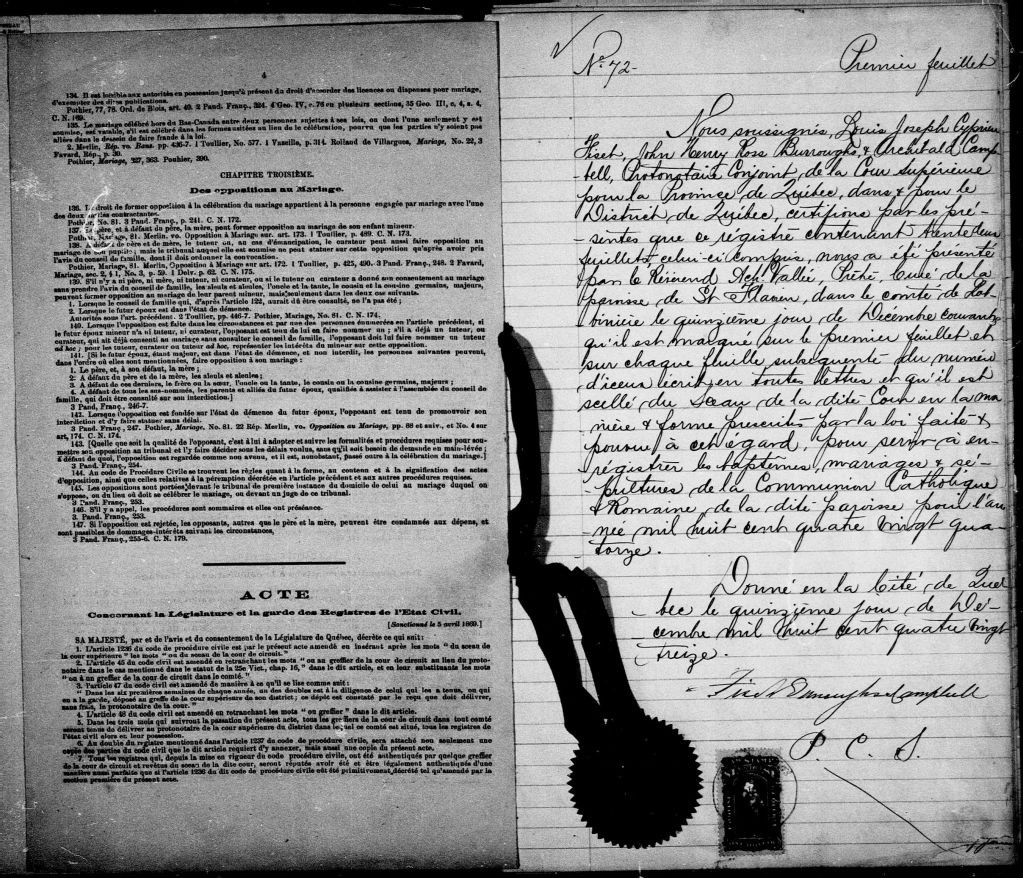 4
134. Il est loisible aux autorités en possession jusqu'à présent du droit d'accorder des licences ou dispenses pour mariage,
d'exempter des dites publications.
Pothier, 77, 78. Ord. de Blois, art. 40. 2 Pand. Franç., 324. 4 Geo. IV, c. 76 en plusieurs sections, 35 Geo. III, c, 4, s. 4,
C. N. 169.
135. Le mariage célébré hors du Bas-Canada entre deux personnes sujettes à ses lois, ou dont l'une seulement y est
soumise, est valable, s'il est célébré dans les formes usitées au lieu de la célébration, pourvu que les parties n'y soient pas
allées dans le dessein de faire fraude à la loi.
2. Merlin, Rép. vo. Bans. pp. 436-7. 1 Toullier, No. 577. 1 Vazille, p. 314. Rolland de Villargues, Mariage, No. 22, 3
Favard, Rép., p. 30.
Pothier, Mariage, 327, 363. Pouhier, 390.
CHAPITRE TROISIÈME.
Des oppositions au Mariage.
136. Le droit de former opposition à la célébration du mariage appartient à la personne engagée par mariage avec l'une
des deux parties contractantes.
Pothier, No. 81. 3 Pand. Franç., p. 241. C. N. 172.
137. Le père, et à défaut du père, la mère, peut former opposition au mariage de son enfant mineur.
Pothier, Mariage, 81. Merlin. vo. Opposition au Mariage sur. art. 173. 1 Toullier, p. 489. C. N. 173.
138. A défaut de père et de mère, le tuteur ou, au cas d'émancipation, le curateur peut aussi faire opposition au
mariage de son pupille; mais le tribunal auquel elle est soumise ne peut statuer sur cette opposition qu'après avoir pris
l'avis du conseil de famille, dont il doit ordonner la convocation.
Pothier, Mariage, 81. Merlin, Opposition à Mariage sur art. 172. 1 Toullier, p. 425, 490. 3 Pand. Franç., 248. 2 Favard,
Mariage, sec. 2, § 1, No. 3, p. 59. 1 Delv. p. 62. C. N. 175.
139. S'il n'y a ni père, ni mère, ni tuteur, ni curateur, ou si le tuteur ou curateur a donné son consentement au mariage
sans prendre l'avis du conseil de famille, les aïeuls et aïeules, l'oncle et la tante, le cousin et la cousine germains, majeurs,
peuvent former opposition au mariage de leur parent mineur, mais seulement dans les deux cas suivants.
1. Lorsque le conseil de famille qui, d'après l'article 122, aurait dû être consulté, ne l'a pas été;
2. Lorsque le futur époux est dans l'état de démence.
Autorités sous l'art. précédent. 2 Toullier, pp. 446-7. Pothier, Mariage, No. 81. C. N. 174.
140. Lorsque l'opposition est faite dans les circonstances et par une des personnes énumérées en l'article précédent, si
le futur époux mineur n'a ni tuteur, ni curateur, l'opposant est tenu de lui en faire nommer un; s'il a déjà un tuteur, ou
curateur, qui ait déjà consenti au mariage sans consulter le conseil de famille, l'opposant doit lui faire nommer un tuteur
ad hoc; pour les tuteur, curateur ou tuteur ad hoc, représenter les intérêts du mineur sur cette opposition.
141. [Si le futur époux, étant majeur, est dans l'état de démence, et non interdit, les personnes suivantes peuvent,
dans l'ordre où elles sont mentionnées, faire opposition à son mariage:
1. Le père, et, à son défaut, la mère;
2. A défaut du père et de la mère, les aïeuls et aïeules;
3. A défaut de ces derniers, le frère ou la sœur, l'oncle ou la tante, le cousin ou la cousine germains, majeurs;
4. A défaut de tous les sus-nommés, les parents et alliés du futur époux, qualifiés à assister à l'assemblée du conseil de
famille, qui doit être consulté sur son interdiction.]
3 Pand. Franç., 246-7.
142. Lorsque l'opposition est fondée sur l'état de démence du futur époux, l'opposant est tenu de promouvoir son
interdiction et d'y faire statuer sans délai.
3 Pand. Franç., 247. Pothier, Mariage, No. 81. 22 Rép. Merlin, vo. Opposition au Mariage, pp. 88 et suiv., et No. 4 sur
art, 174. C. N. 174.
143. [Quelle que soit la qualité de l'opposant, c'est à lui à adopter et suivre les formalités et procédures requises pour sou-
mettre son opposition au tribunal et l'y faire décider sous les délais voulus, sans qu'il soit besoin de demande en main-levée;
à défaut de quoi, l'opposition est regardée comme non avenue, et il est, nonobstant, passé outre à la célébration du mariage.]
3 Pand. Franç., 254.
144. Au code de Procédure Civile se trouvent les règles quant à la forme, au contenu et à la signification des actes
d'opposition, ainsi que celles relatives à la péremption décrétée en l'article précédent et aux autres procédures requises.
145. Les oppositions sont portées devant le tribunal de première instance du domicile de celui au mariage duquel on
s'oppose, ou du lieu où doit se célébrer le mariage, ou devant un juge de ce tribunal.
3 Pand. Franç., 253.
146. S'il y a appel, les procédures sont sommaires et elles ont préséance.
3. Pand. Franç., 253.
147. Si l'opposition est rejetée, les opposants, autres que le père et la mère, peuvent être condamnés aux dépens, et
sont passibles de dommages-intérêts suivant les circonstances,
3 Pand. Franç., 255-6. C. N. 179.
ACTE
Concernant la Législature et la garde des Registres de l'Etat Civil.
[Sanctionné le 5 avril 1869.]
SA MAJESTÉ, par et de l'avis et du consentement de la Législature de Québec, décrète ce qui suit:
1. L'article 1236 du code de procédure civile est par le présent acte amendé en insérant après les mots "du sceau de
la cour supérieure" les mots "ou du sceau de la cour de circuit."
2. L'article 45 du code civil est amendé en retranchant les mots "ou au greffier de la cour de circuit au lieu du proto-
notaire dans le cas mentionné dans le statut de la 25e Vict., chap. 16," dans le dit article, et en leur substituant les mots
"ou à un greffier de la cour de circuit dans le comté."
3. l'article 47 du code civil est amendé de manière à ce qu'il se lise comme suit:
"Dans les six premières semaines de chaque année, un des doubles est à la diligence de celui qui les a tenus, ou qui
en a la garde, déposé au greffe de la cour supérieure de son district; ce dépôt est constaté par le reçu que doit délivrer,
sans frais, le protonotaire de la cour."
4. L'article 48 du code civil est amendé en retranchant les mots "ou greffier" dans le dit article.
5. Dans les trois mois qui suivront la passation du présent acte, tous les greffiers de la cour de circuit dans tout comté
seront tenus de délivrer au protonotaire de la cour supérieure du district dans lequel ce comté est situé, tous les registres de
l'état civil alors en leur possession.
6. Au double du registre mentionné dans l'article 1237 du code de procédure civile, sera attaché non seulement une
copie des parties du code civil que le dit article requiert d'y annexer, mais aussi une copie du présent acte.
7. Tous les registres qui, depuis la mise en vigueur du code de procédure civile, ont été authentiqués par quelque greffier
de la cour de circuit et revêtus du sceau de la dite cour, seront réputés avoir été et être légalement authentiqués d'une
manière aussi parfaite que si l'article 1236 du dit code de procédure civile eût été primitivement décrété tel qu'amendé par la
section première du présent acte.
No. 72- Premier feuillet
Nous soussignés, Louis Joseph Cyprien
Fiset, John Henry Ross Burroughs, & Archibald Camp-
bell, Protonotaire Conjoint, de la Cour Supérieure
pour la Province de Québec, dans & pour le
District de Québec, certifions par les pré-
sentes que ce régistre contenant trente deux
feuillets celui-ci compris, nous a été présenté
par le Révérend Ach. Vallée, Ptre Curé de la
paroisse de St Flavien, dans le comté de Lot-
binière le quinzième jour de Décembre courant
qu'il est marqué sur le premier feuillet et
sur chaque feuille subséquente du numéro
d'iceux écrit en toutes lettres et qu'il est
scellé du Sceau de la dite Cour en la ma
nière & forme prescrites par la loi faite &
pourvu à cet égard, pour servir à en-
régistrer les baptêmes, mariages & sé-
pultures de la Communion Catholique
& Romaine de la dite paroisse pour l'an
née mil huit cent quatre vingt qua
torze.
Donné en la Cité de Qué
bec le quinzième jour de Dé-
cembre mil huit cent quatre vingt
treize.
Fiset Burroughs Campbell
P. C. S.